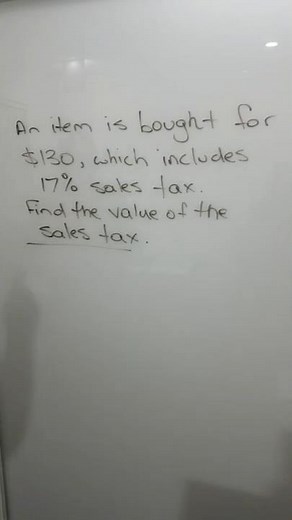 An item is bought for
$130, which includes
17% sales tax.
Find the value of the
sales tax.